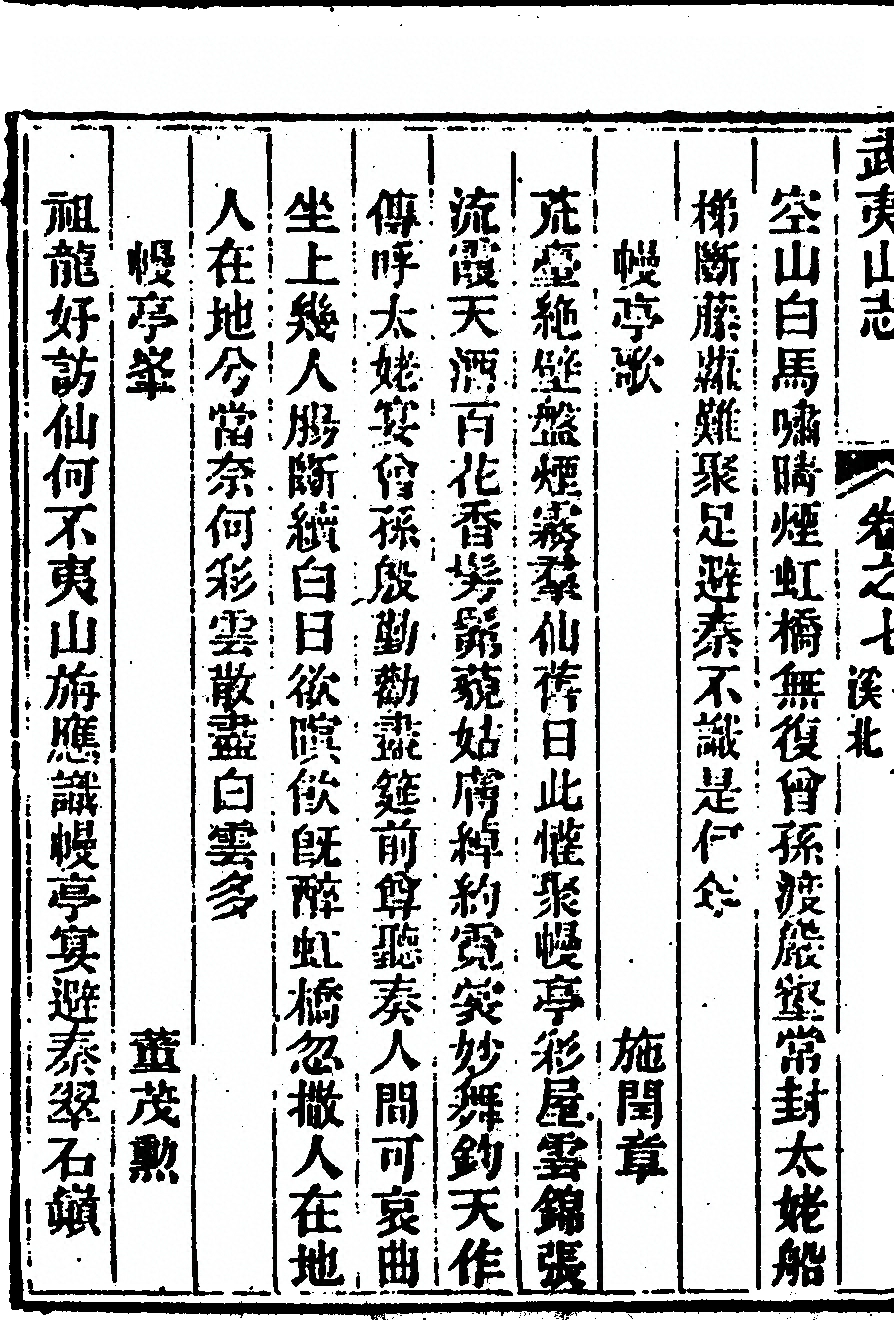 武夷山志 卷之七 溪北
空山白馬嘯晴煙虹橋無復曾孫渡巖壑常封太姥船
梯斷藤蘿難聚足避秦不識是何年
幔亭歌 施閏章
荒臺絶壁盤煙霧羣仙舊日此懽聚幔亭彩屋雲錦張
流霞天酒百花香髣髴藐姑膚綽約霓裳妙舞鈞天作
傳呼太姥宴曾孫殷勤勸盡筵前尊聽奏人間可哀曲
坐上幾人腸斷續白日欲暝飲既醉虹橋忽撒人在地
人在地兮當奈何彩雲散盡白雲多
幔亭峯 董茂勲
祖龍好訪仙何不夷山旃應識幔亭宴避秦翠石巔